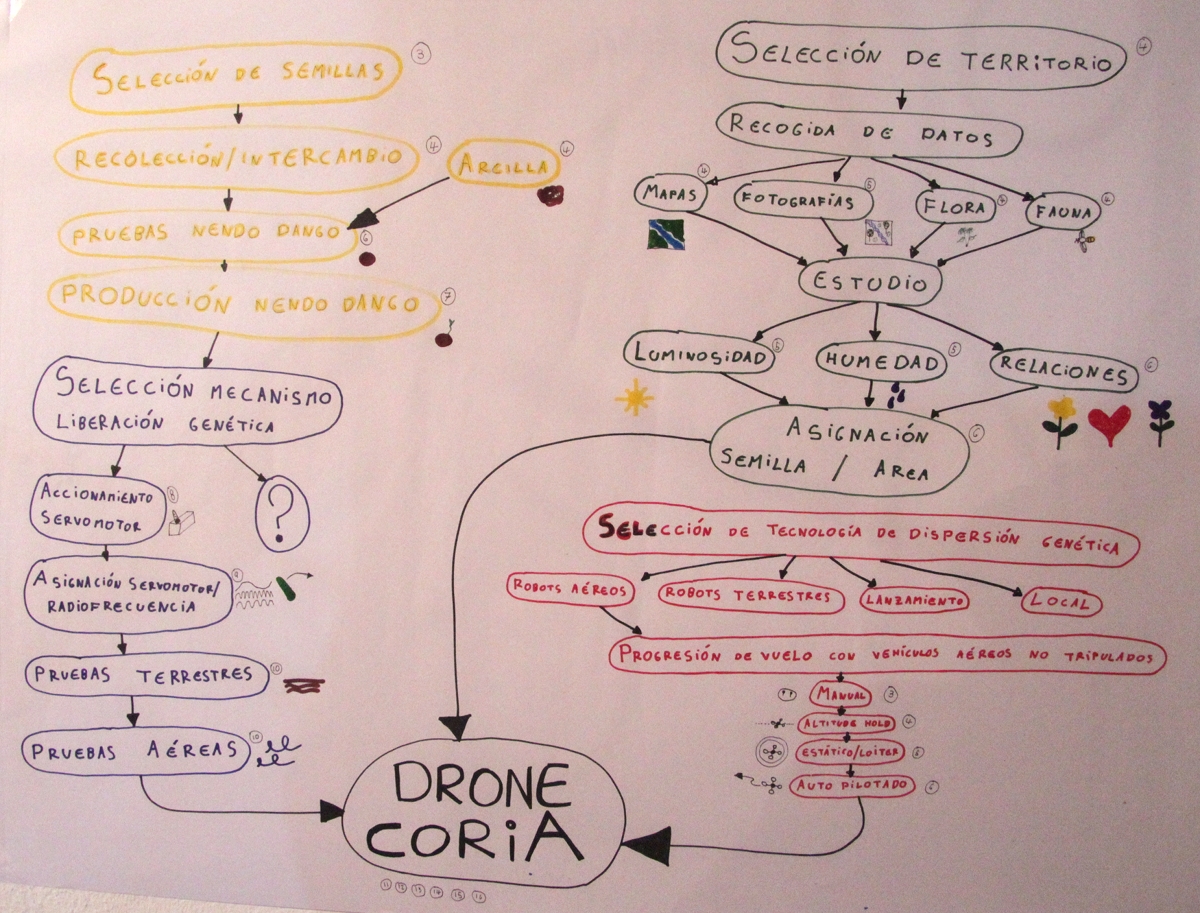 SELECCIÓN DE SEMILLAS
3
RECOLECCIÓN/INTERCAMBIO
4
ARCILLA
4
PRUEBAS NENDO DANGO
6
PRODUCCIÓN NENDO DANGO
7
SELECCIÓN MECANISMO
LIBERACIÓN GENÉTICA
ACCIONAMIENTO
SERVOMOTOR
8
?
ASIGNACIÓN SERVOMOTOR/
RADIOFRECUENCIA
9
PRUEBAS TERRESTRES
10
PRUEBAS AÉREAS
10
SELECCIÓN DE TERRITORIO
RECOGIDA DE DATOS
MAPAS
4
FOTOGRAFÍAS
5
FLORA
4
FAUNA
ESTUDIO
LUMINOSIDAD
5
HUMEDAD
5
RELACIONES
ASIGNACIÓN
SEMILLA / AREA
SELECCIÓN DE TECNOLOGÍA DE DISPERSIÓN GENÉTICA
ROBOTS AÉREOS
ROBOTS TERRESTRES
LANZAMIENTO
LOCAL
PROGRESIÓN DE VUELO CON VEHÍCULOS AÉREOS NO TRIPULADOS
MANUAL
3
ALTITUDE HOLD
4
ESTÁTICO/LOITER
AUTO PILOTADO
DRONE
CORiA
11 12 13 14 15 16